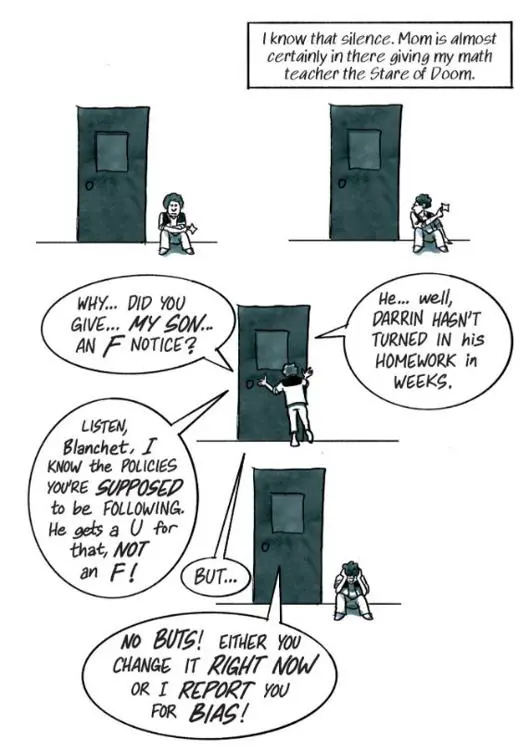 I know that silence. Mom is almost
certainly in there giving my math
teacher the Stare of Doom.
WHY... DID YOU
GIVE... MY SON...
AN F NOTICE?
He... well,
DARRIN HASN'T
TURNED IN his
HOMEWORK in
WEEKS.
LISTEN,
Blanchet, I
KNOW the POLICIES
YOU'RE SUPPOSED
to be FOLLOWING.
He gets a U for
that, NOT
an F!
BUT...
NO BUTS! EITHER YOU
CHANGE IT RIGHT NOW
OR I REPORT YOU
FOR BIAS!